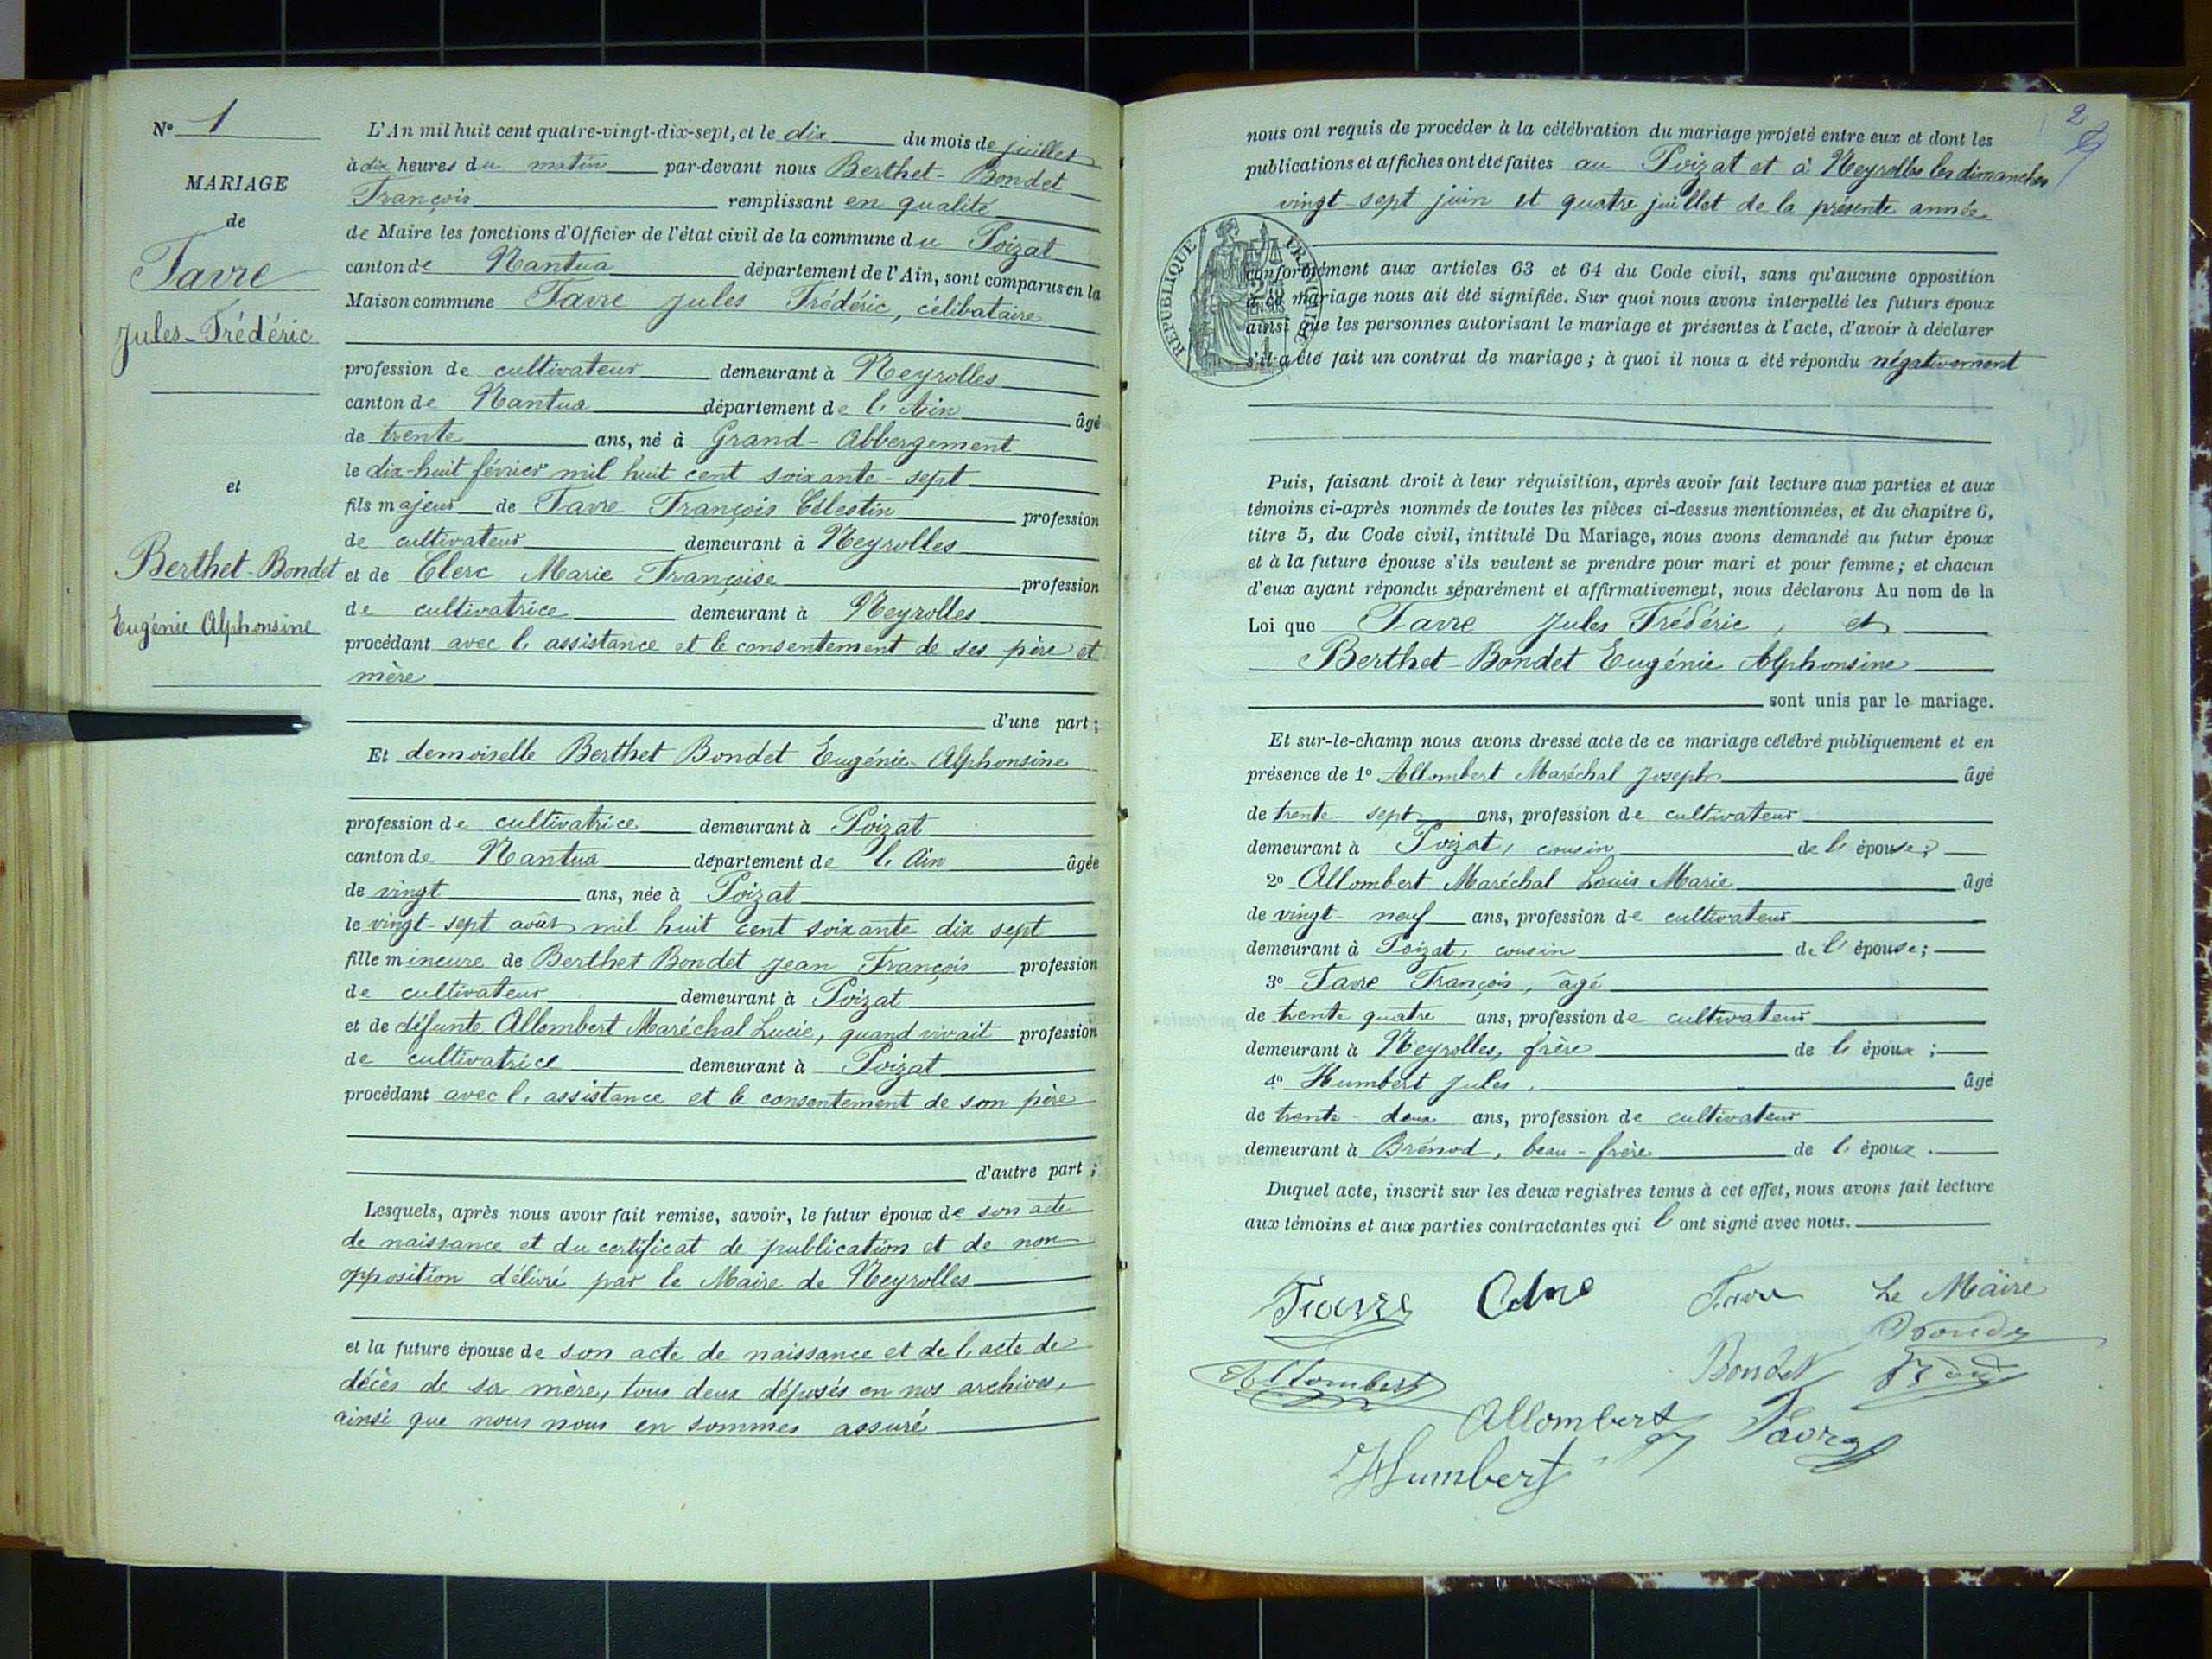 N° 1
MARIAGE
de
Favre
Jules-Frédéric
et
Berthet-Bondet
Eugénie Alphonsine
L'An mil huit cent quatre-vingt-dix-sept, et le dix du mois de juillet
à dix heures du matin par-devant nous Berthet-Bondet
François remplissant en qualité
de Maire les fonctions d'Officier de l'état civil de la commune du Poizat
canton de Nantua département de l'Ain, sont comparus en la
Maison commune Favre Jules Frédéric, célibataire
profession de cultivateur demeurant à Neyrolles
canton de Nantua département de l'Ain âgé
de trente ans, né à Grand-Abbergement
le dix-huit février mil huit cent soixante-sept
fils majeur de Favre François Célestin profession
de cultivateur demeurant à Neyrolles
et de Clerc Marie Françoise profession
de cultivatrice demeurant à Neyrolles
procédant avec l'assistance et le consentement de ses père et
mère
d'une part;
Et demoiselle Berthet Bondet Eugénie-Alphonsine
profession de cultivatrice demeurant à Poizat
canton de Nantua département de l'Ain âgée
de vingt ans, née à Poizat
le vingt-sept août mil huit cent soixante dix sept
fille mineure de Berthet Bondet Jean François profession
de cultivateur demeurant à Poizat
et de défunte Allombert Maréchal Lucie, quand vivait profession
de cultivatrice demeurant à Poizat
procédant avec l'assistance et le consentement de son père
d'autre part;
Lesquels, après nous avoir fait remise, savoir, le futur époux de son acte
de naissance et du certificat de publication et de non
opposition délivré par le Maire de Neyrolles
et la future épouse de son acte de naissance et de l'acte de
décès de sa mère, tous deux déposés en nos archives,
ainsi que nous nous en sommes assuré
2
nous ont requis de procéder à la célébration du mariage projeté entre eux et dont les
publications et affiches ont été faites au Poizat et à Neyrolles les dimanches
vingt-sept juin et quatre juillet de la présente année
RÉPUBLIQUE FRANÇAISE
conformément aux articles 63 et 64 du Code civil, sans qu'aucune opposition
à ce mariage nous ait été signifiée. Sur quoi nous avons interpellé les futurs époux
ainsi que les personnes autorisant le mariage et présentes à l'acte, d'avoir à déclarer
s'il a été fait un contrat de mariage; à quoi il nous a été répondu négativement
Puis, faisant droit à leur réquisition, après avoir fait lecture aux parties et aux
témoins ci-après nommés de toutes les pièces ci-dessus mentionnées, et du chapitre 6,
titre 5, du Code civil, intitulé Du Mariage, nous avons demandé au futur époux
et à la future épouse s'ils veulent se prendre pour mari et pour femme; et chacun
d'eux ayant répondu séparément et affirmativement, nous déclarons Au nom de la
Loi que Favre Jules Frédéric, et
Berthet-Bondet Eugénie Alphonsine
sont unis par le mariage.
Et sur-le-champ nous avons dressé acte de ce mariage célébré publiquement et en
présence de 1° Allombert Maréchal Joseph âgé
de trente-sept ans, profession de cultivateur
demeurant à Poizat, cousin de l'épouse;
2° Allombert Maréchal Louis Marie âgé
de vingt-neuf ans, profession de cultivateur
demeurant à Poizat, cousin de l'épouse;
3° Favre François, âgé
de trente quatre ans, profession de cultivateur
demeurant à Neyrolles, frère de l'époux;
4° Humbert Jules, âgé
de trente-deux ans, profession de cultivateur
demeurant à Brénod, beau-frère de l'époux.
Duquel acte, inscrit sur les deux registres tenus à cet effet, nous avons fait lecture
aux témoins et aux parties contractantes qui l'ont signé avec nous.
Favre Favre Le Maire
Allombert Bondet
Allombert Favre
Humbert